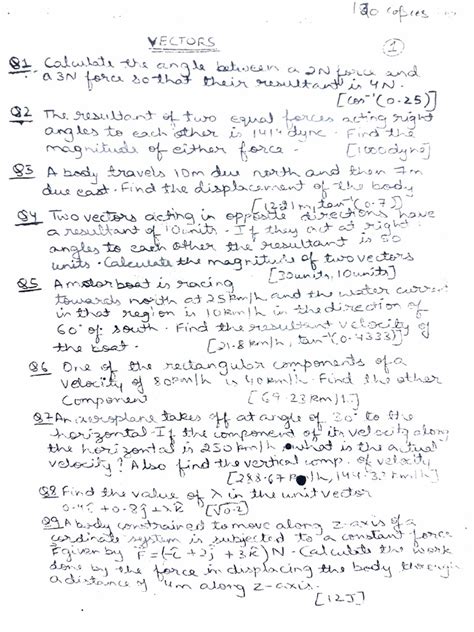 120 copies
VECTORS
1
Q1 Calculate the angle between a 2N force and
a 3N force so that their resultant is 4N.
[cos⁻¹(0.25)]
Q2 The resultant of two equal forces acting right
angles to each other is 1414 dyne. Find the
magnitude of either force. [1000 dyne]
Q3 A body travels 10m due north and then 7m
due east. Find the displacement of the body
[12.21m, tan⁻¹(0.7)]
Q4 Two vectors acting in opposite directions have
a resultant of 10 units. If they act at right
angles to each other the resultant is 50
units. Calculate the magnitude of two vectors
[30 units, 10 units]
Q5 A motorboat is racing
towards north at 25 km/h and the water current
in that region is 10 km/h in the direction of
60° of south. Find the resultant velocity of
the boat. [21.8 km/h, tan⁻¹(0.4333)]
Q6 One of the rectangular components of a
velocity of 80 km/h is 40 km/h. Find the other
Component [69.23 Km/h]
Q7 An aeroplane takes off at angle of 30° to the
horizontal. If the component of its velocity along
the horizontal is 250 km/h, what is the actual
velocity? Also find the vertical comp. of velocity
[288.67 /h, 144.3 km/h]
Q8 Find the value of λ in the unit vector
0.4î + 0.8ĵ + λk̂ [√0.2]
Q9 A body constrained to move along z-axis of a
cordinate system is subjected to a constant force
F given by F⃗ = (-î + 2ĵ + 3k̂) N. Calculate the work
done by the force in displacing the body through
a distance of 4m along z-axis.
[12J]